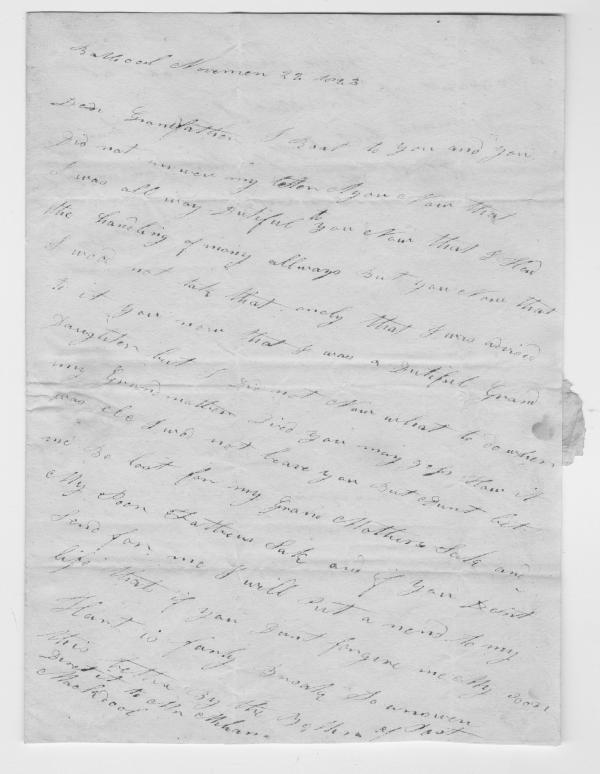 November 22 1823
Dear Grandfather I Roat to you and you
Did not answer my letter you Now that
I was all way Dutiful to you Now that I Had
the handling of mony allways but you Now that
I wood not take that only that I was advised
to it you now that I was a Dutiful Grand
Daughter but I Did not Now what to do when
my Grandmother Died you may gess How it
was els I wod not leave you But dount let
me be lost for my Grand Mothers Sake and
My Poor Fathers Sake and if you Dount
Send for me I will put a nend to my
life that if you Dount forgive me My Poor
Hart is fairly Broake So answer
this letter By the Return of Post
Direct it to Mr